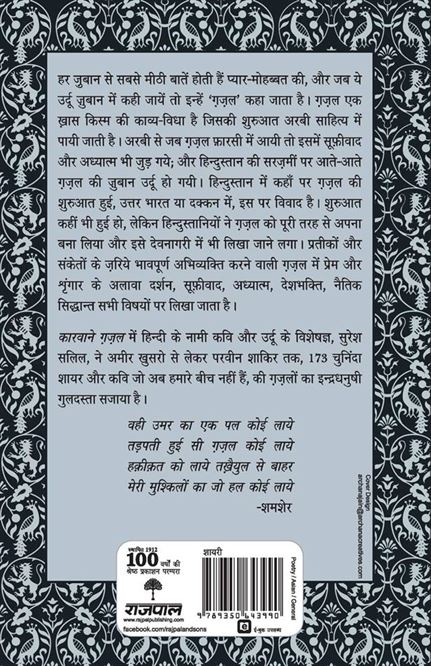 हर ज़ुबान से सबसे मीठी बातें होती हैं प्यार-मोहब्बत की, और जब ये
उर्दू ज़ुबान में कही जायें तो इन्हें 'ग़ज़ल' कहा जाता है। ग़ज़ल एक
ख़ास किस्म की काव्य-विधा है जिसकी शुरुआत अरबी साहित्य में
पायी जाती है। अरबी से जब ग़ज़ल फ़ारसी में आयी तो इसमें सूफ़ीवाद
और अध्यात्म भी जुड़ गये; और हिन्दुस्तान की सरज़मीं पर आते-आते
ग़ज़ल की ज़ुबान उर्दू हो गयी। हिन्दुस्तान में कहाँ पर ग़ज़ल की
शुरुआत हुई, उत्तर भारत या दक्कन में, इस पर विवाद है। शुरुआत
कहीं भी हुई हो, लेकिन हिन्दुस्तानियों ने ग़ज़ल को पूरी तरह से अपना
बना लिया और इसे देवनागरी में भी लिखा जाने लगा। प्रतीकों और
संकेतों के ज़रिये भावपूर्ण अभिव्यक्ति करने वाली ग़ज़ल में प्रेम और
शृंगार के अलावा दर्शन, सूफ़ीवाद, अध्यात्म, देशभक्ति, नैतिक
सिद्धान्त सभी विषयों पर लिखा जाता है।
कारवाने ग़ज़ल में हिन्दी के नामी कवि और उर्दू के विशेषज्ञ, सुरेश
सलिल, ने अमीर खुसरो से लेकर परवीन शाकिर तक, 173 चुनिंदा
शायर और कवि जो अब हमारे बीच नहीं हैं, की ग़ज़लों का इन्द्रधनुषी
गुलदस्ता सजाया है।
वही उमर का एक पल कोई लाये
तड़पती हुई सी ग़ज़ल कोई लाये
हक़ीक़त को लाये तख़ैयुल से बाहर
मेरी मुश्किलों का जो हल कोई लाये
-शमशेर
Cover Design
archanajain@archanacreatives.com
स्थापित 1912
100 वर्षों की
श्रेष्ठ प्रकाशन परम्परा
राजपाल
www.rajpalpublishing.com
facebook.com/rajpalandsons
शायरी
9 789350 643990
ई-बुक उपलब्ध
Poetry / Asian / General